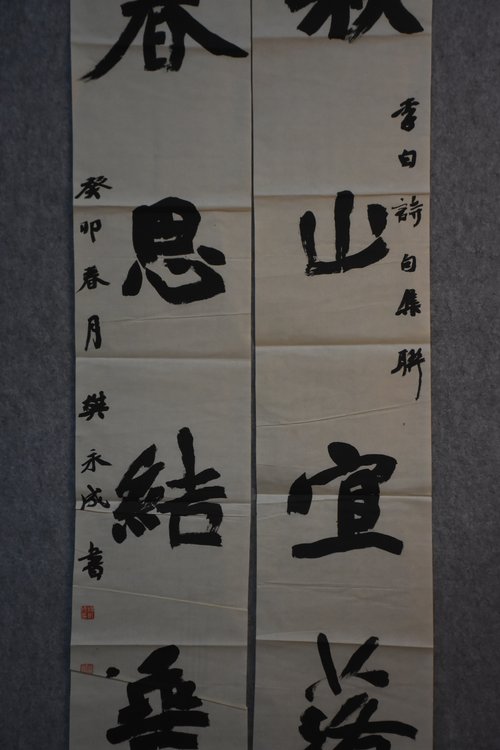 李白詩句集聯
秋山宜落
春思結垂
癸卯春月 樊永成書